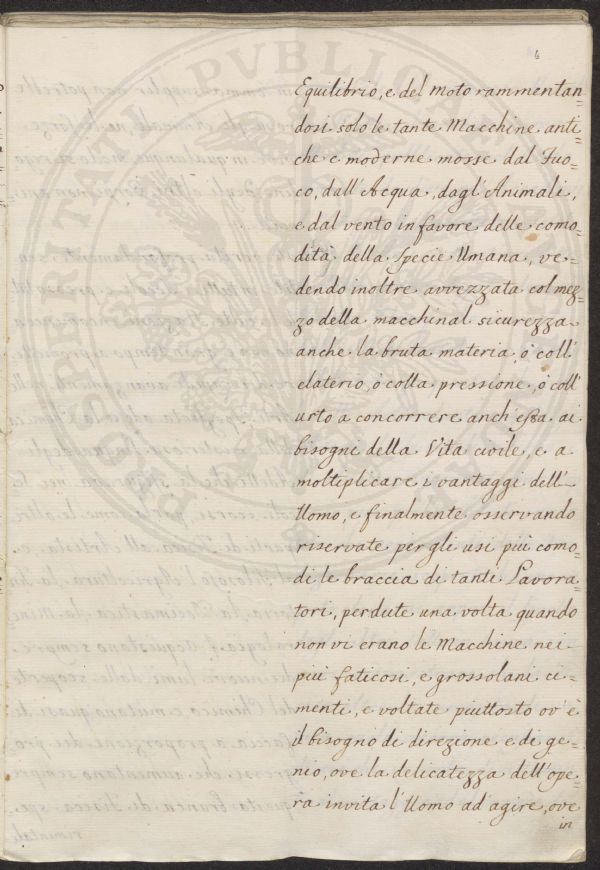 4
Equilibrio, e del moto rammentan=
dosi solo le tante Macchine anti=
che e moderne mosse dal Fuo=
co, dall'Acqua, dagl'Animali,
e dal vento in favore delle como=
dità della Specie Umana, ve=
dendo inoltre avvezzata col mez=
zo della macchinal sicurezza
anche la bruta materia, ò coll'
elaterio, ò colla pressione, ò coll'
urto a concorrere anch'essa ai
bisogni della Vita civile, e a
moltiplicare i vantaggi dell'
Uomo, e finalmente osservando
riservate per gli usi più como=
di le braccia di tanti Lavora=
tori, perdute una volta quando
non vi erano le Macchine nei
più faticosi, e grossolani ci=
menti, e voltate piuttosto ov'è
il bisogno di direzione e di ge=
nio, ove la delicatezza dell'ope=
ra invita l'Uomo ad'agire, ove
in
PROSPERITATI PUBLICAE